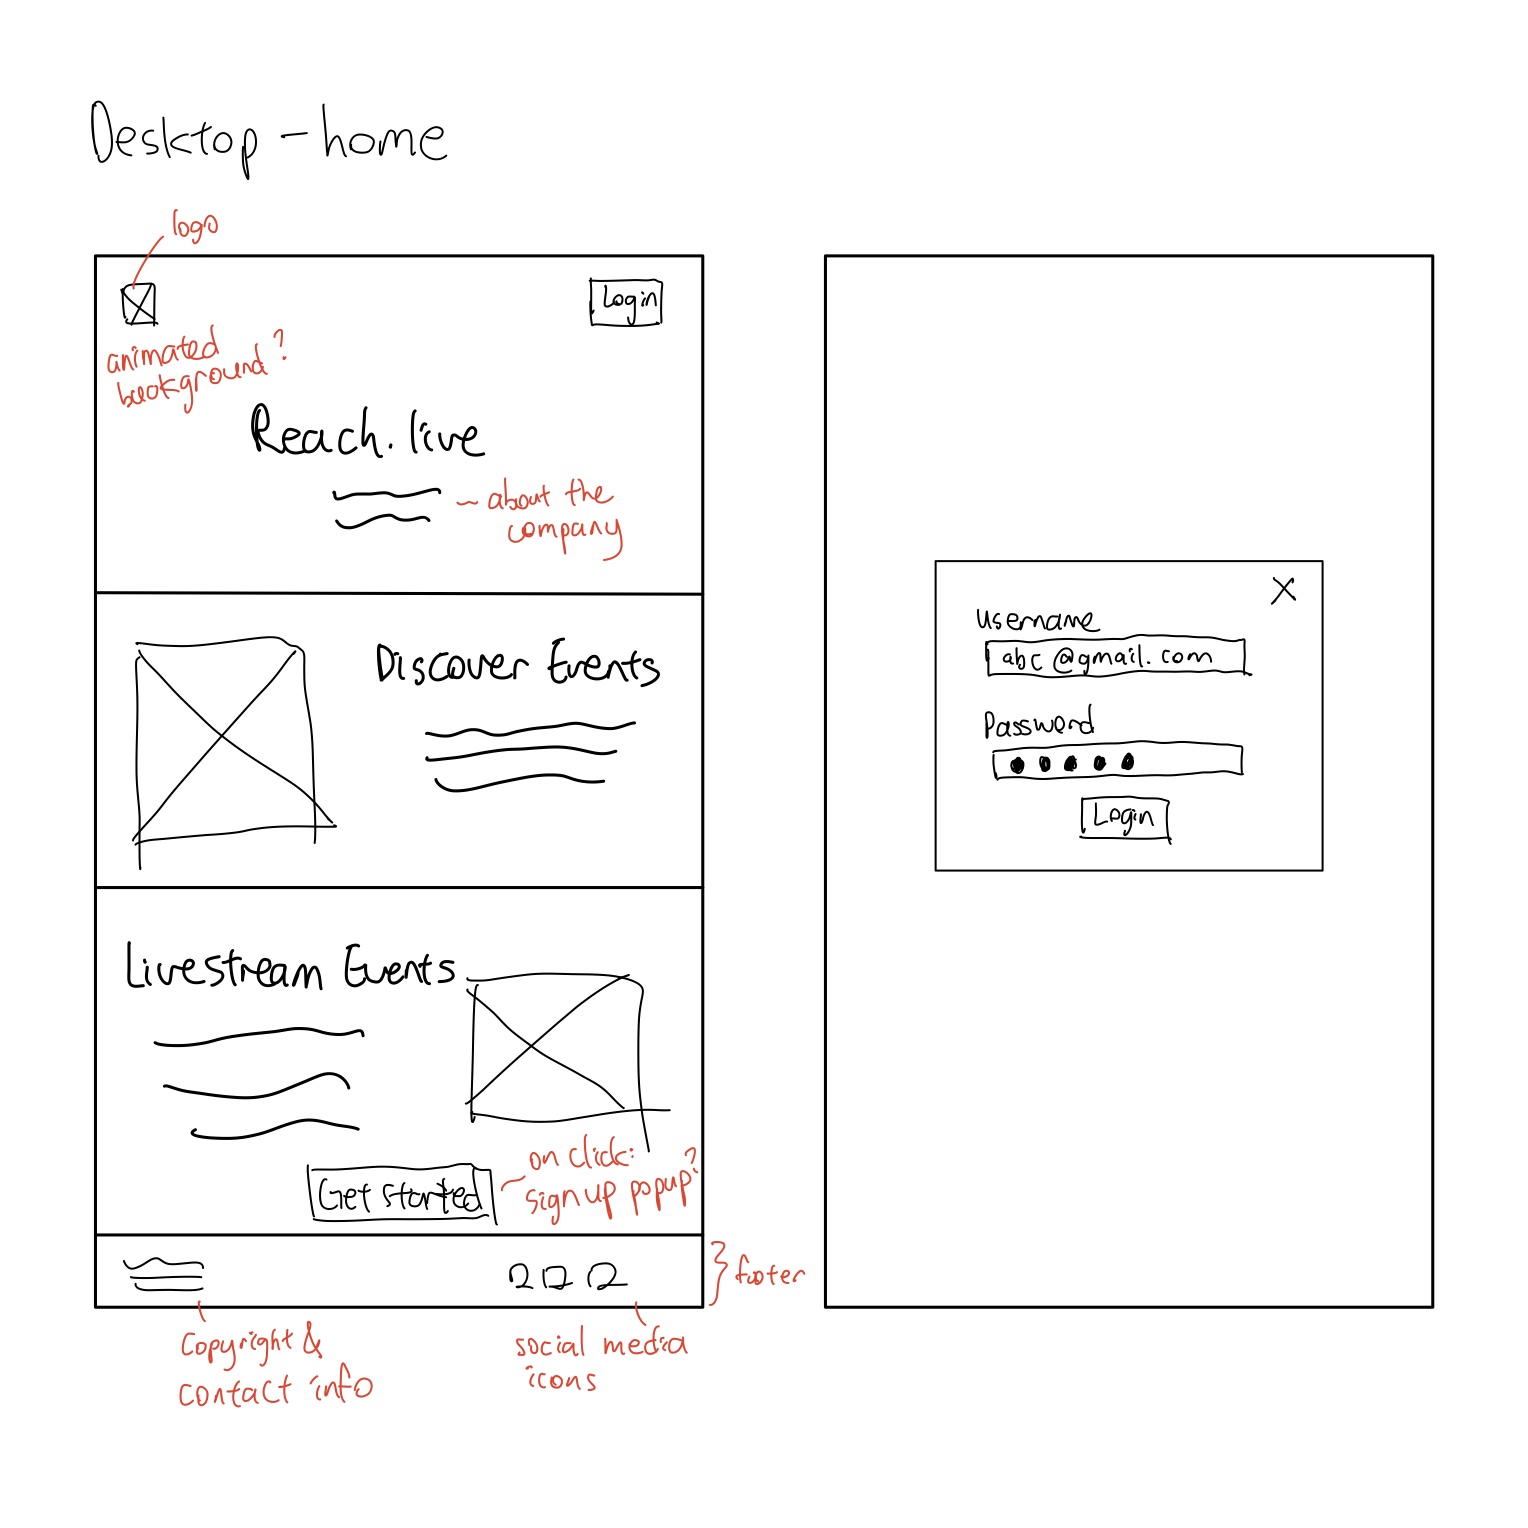 Desktop - home
logo
Login
animated
background?
Reach.live
~ about the
company
Discover Events
Livestream Events
on click:
sign up popup?
Get started
footer
Copyright &
contact info
social media
icons
X
Username
abc@gmail.com
Password
Login